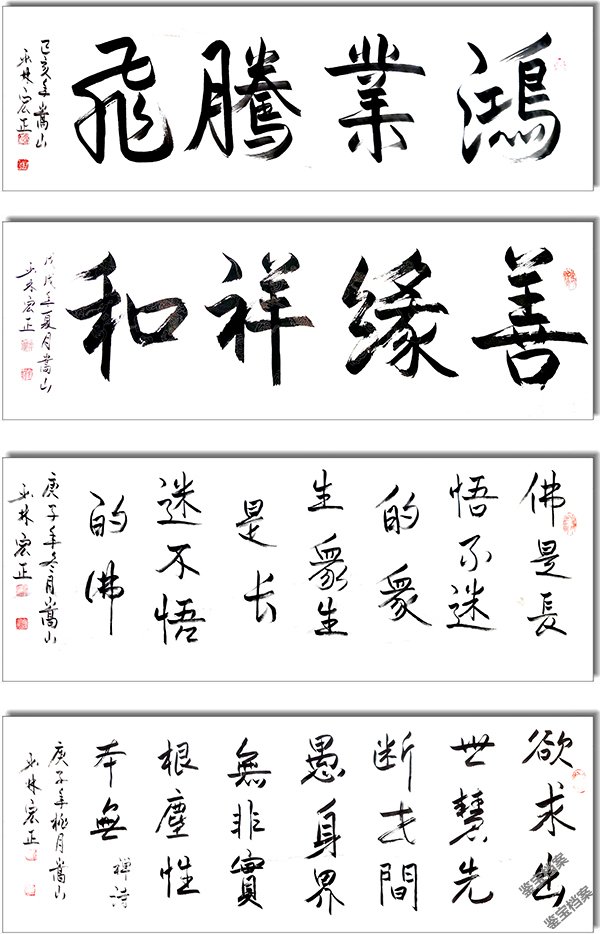 鴻業騰飛
己亥年嵩山
少林宏正
善緣祥和
戊戌年夏月嵩山
少林宏正
佛是長
悟不迷
的衆
生衆生
是长
迷不悟
的佛
庚子年冬月嵩山
少林宏正
欲求出
世慧先
断世間
愚身界
無非實
根塵性
本無
禪詩
庚子年桃月嵩山
少林宏正
鉴宝档案
鉴宝档案